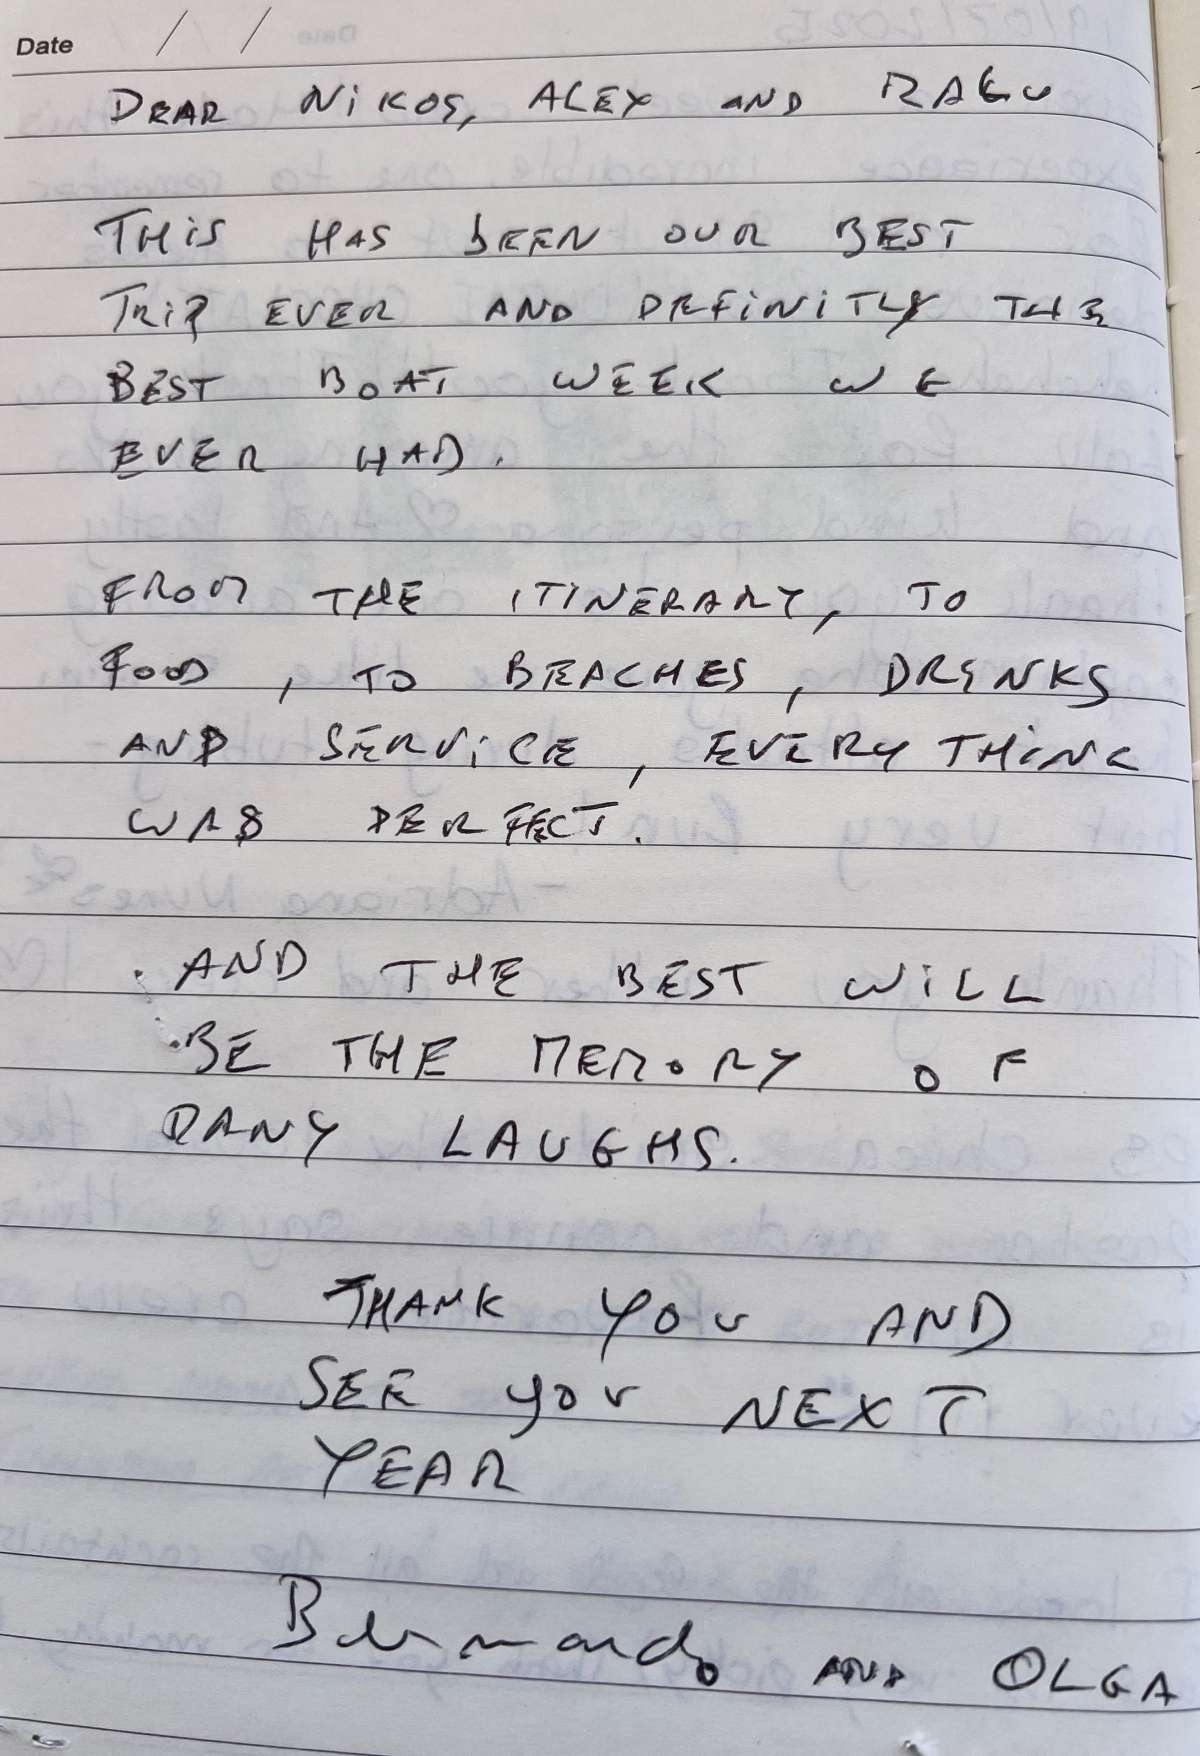 Date / /
DEAR NIKOS, ALEX AND RAGU
THIS HAS BEEN OUR BEST
TRIP EVER AND DEFINITLY THE
BEST BOAT WEEK WE
EVER HAD.
FROM THE ITINERARY, TO
FOOD, TO BEACHES, DRINKS
AND SERVICE, EVERYTHING
WAS PERFECT.
AND THE BEST WILL
BE THE MEMORY OF
MANY LAUGHS.
THANK YOU AND
SEE YOU NEXT
YEAR
Bernardo AND OLGA